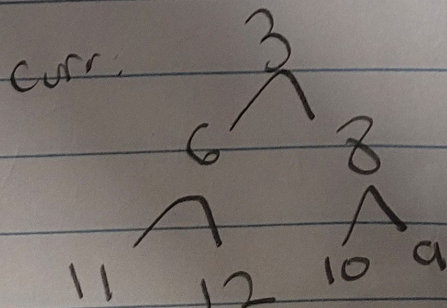 3
curr.
6 8
11 12 10 9